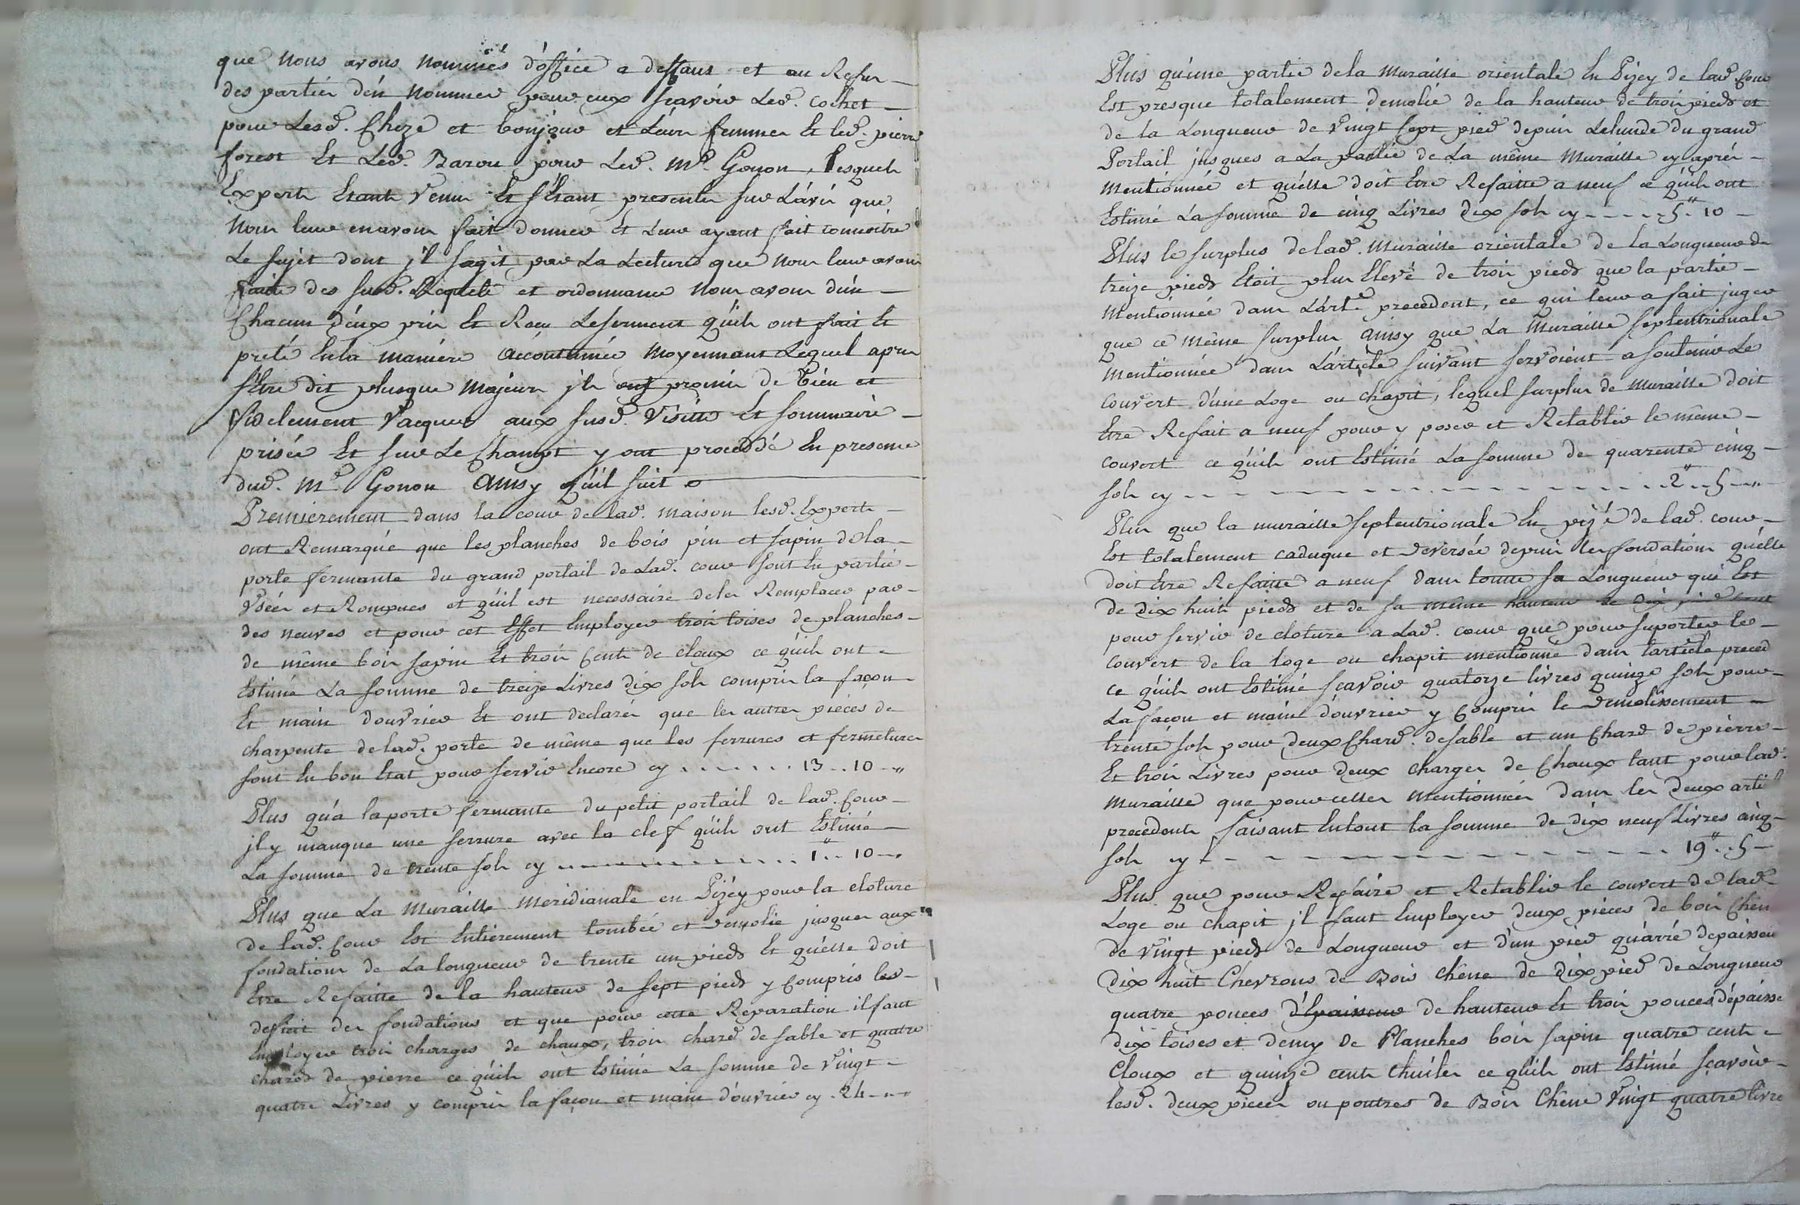 que nous avons nommés d'office a deffaus et au Refus
des partiés d'en Nommer pour eux sçavoir Led. cochet
pour Lesd. Chize et bonjour et Leur femmes Et led. pierre
forest Et Led. Barou pour Led. Mr. Gonon, Lesquels
Experts Etants venus Et s'Etant presentés sur L'avis que
Nous leur en avons fait donner Et Leur ayant fait connoitre
Le sujet dont jl sagit par La Lecture que Nous leur avons
faite des susd. Requete et ordonnance nous avons d'un
Chacun d'eux pris Et Recu Leserment quils ont fait Et
preté En la maniere accoutumée moyennant Lequel apres
s'Etre dit plusque majeurs jls ont promis de bien et
fidelement Vacquer aux susd. Visitte Et sommaire
prisée Et sur Le Champt y ont procedé En presence
dud. Mr. Gonon Ainsy quil suit
Premierement dans la cour de lad. maison lesd. Experts
ont Remarqué que les planches de bois pin et sapin de la
porte fermante du grand portail de Lad. cour sont En partie
Usées et Rompues et quil est necessaire deles Remplacer par
des neuves et pour cet Effet Employer trois toises de planches
de même bois sapin Et trois Cents de cloux ce quils ont
Estimé La somme de treize Livres dix sols compris la façon
Et main douvrier Et ont declarés que les autres pieces de
charpente delad. porte de même que les ferrures et fermetures
sont En bon Etat pour servir Encore cy . . . . . . . 13 .. 10 "
Plus qu'a la porte fermante du petit portail de lad. Cour
jl y manque une serrure avec la clef quils ont Estimé
La somme de trente sols cy . . . . . . . 1 .. 10 "
Plus que La Muraille Meridianale en Pizéy pour la cloture
de lad. Cour Est Entierement tombée et demolie jusques aux
fondations de La longueur de trente un pieds Et quelle doit
Etre Refaitte de la hauteur de sept pieds y Compris les
des fondations et que pour cette Reparation il faut
Employer trois charges de chaux, trois chard de sable et quatre
chards de pierre ce quils ont Estimé La somme de vingt
quatre Livres y compris la façon et main d'ouvrier cy . 24 " "
Plus qu'une partie de la Muraille orientale En Pizey de lad. Cour
Est presque totalement demolie de la hauteur de trois pieds et
de la Longueur de vingt sept pied depuis du grand
Portail jusques a La partie de La même Muraille cy après
mentionnée et quelle doit Etre Refaitte a neuf ce quils ont
Estimé La somme de cinq Livres dix sols cy - - - - - 5 " 10
Plus le surplus de lad. Muraille orientale de la Longueur de
treize pieds Etoit plus Elevé de trois pieds que la partie
Mentionnée dans L'artle precedent, ce qui leur a fait juger
que ce même surplus ainsy que La Muraille septentrionale
mentionnée dans L'article suivant servoient a soutenir Le
couvert d'une Loge ou chapit, lequel surplus de Muraille doit
Etre Refait a neuf pour y poser et Retablir le même
couvert ce quils ont Estimé La somme de quarente cinq
sols cy - - - - - - - - - 2 .. 5 "
Plus que la muraille septentrionale En pizé de lad. cour
Est totalement caduque et deversée depuis les fondations quelle
doit Etre Refaitte a neuf dans toutte sa Longueur qui Est
de dix huit pieds et de sa même hauteur de dix tant
pour servir de cloture a Lad. cour que pour suporter le
couvert de la loge ou chapit mentionné dans l'article preced
ce quils ont Estimé sçavoir quatorze livres quinze sols pour
La façon et main d'ouvrier y Compris le demolissement
trente sols pour deux Chard. de sable et un Chard de pierre
Et trois Livres pour deux charges de Chaux tant pour lad.
Muraille que pour celles mentionnées dans les deux artles
precedents faisant En tout la somme de dix neuf Livres cinq
sols cy - - - - - - - - - 19 .. 5
Plus que pour Refaire et Retablir le couvert de lad.
Loge ou chapit jl faut Employer deux pieces de bois Chên
de vingt pieds de Longueur et d'un pied quarré depaisseur
dix huit Chevrons de Bois chêne de dix pied de Longueur
quatre pouces d'Epaisseur de hauteur Et trois pouces d'épaisse
dix toises et demy de Planches bois sapin quatre cents
Cloux et quinze cents thuiles ce quils ont Estimé sçavoir
lesd. deux pieces ou poutres de Bois Chêne Vingt quatre livre